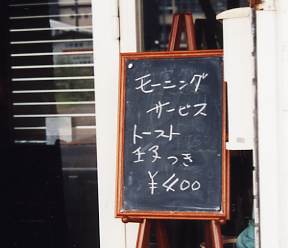 モーニング
サービス
トースト
玉子つき
¥400